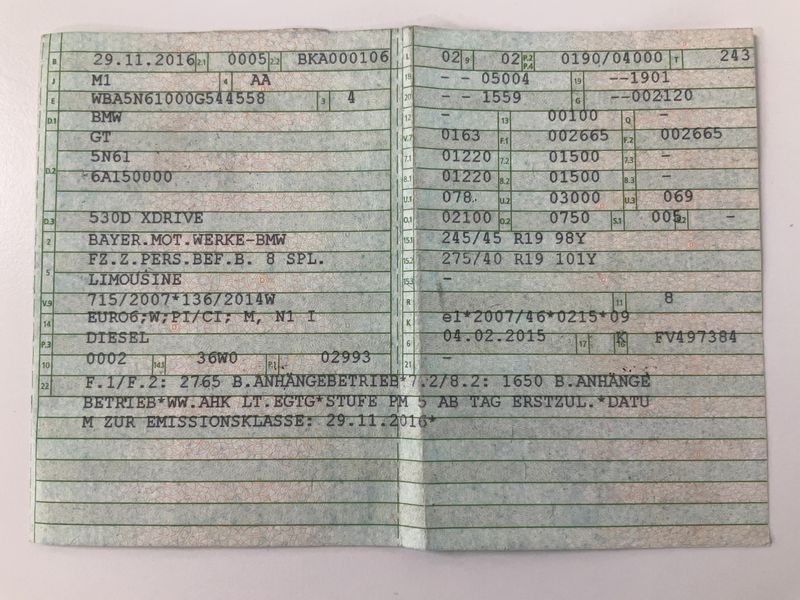 B 29.11.2016 2.1 0005 2.2 BKA000106
J M1 4 AA
E WBA5N61000G544558 3 4
D.1 BMW
GT
D.2 5N61
6A150000
D.3 530D XDRIVE
2 BAYER.MOT.WERKE-BMW
5 FZ.Z.PERS.BEF.B. 8 SPL.
LIMOUSINE
V.9 715/2007*136/2014W
14 EURO6;W;PI/CI; M, N1 I
P.3 DIESEL
10 0002 14.1 36W0 P.1 02993
L 02 9 02 P.2 P.4 0190/04000 T 243
18 - - 05004 19 --1901
20 - - 1559 G --002120
12 - 13 00100 Q -
V.7 0163 F.1 002665 F.2 002665
7.1 01220 7.2 01500 7.3 -
8.1 01220 8.2 01500 8.3 -
U.1 078 U.2 03000 U.3 069
O.1 02100 O.2 0750 S.1 005 S.2 -
15.1 245/45 R19 98Y
15.2 275/40 R19 101Y
15.3 -
R 11 8
K e1*2007/46*0215*09
6 04.02.2015 17 K 16 FV497384
21 -
22 F.1/F.2: 2765 B.ANHÄNGEBETRIEB*7.2/8.2: 1650 B.ANHÄNGE
BETRIEB*WW.AHK LT.EGTG*STUFE PM 5 AB TAG ERSTZUL.*DATU
M ZUR EMISSIONSKLASSE: 29.11.2016*